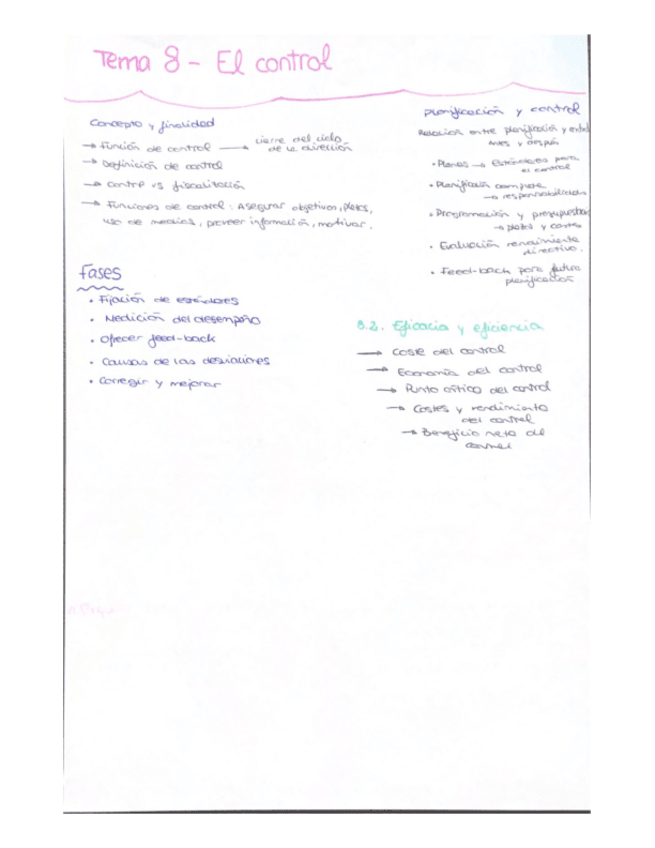 Tema 8 - El control
Concepto y finalidad
→ Función de control → cierre del ciclo
de la dirección
→ Definición de control
→ Control vs fiscalización
→ Funciones de control: Asegurar objetivos, planes,
uso de medios, proveer información, motivar.
Fases
• Fijación de estándares
• Medición del desempeño
• Ofrecer feed-back
• Causas de las desviaciones
• Corregir y mejorar
Planificación y control
Relación entre planificación y control
antes y después
• Planes → Estándares para
el control
• Planificación
→ responsabilidades
• Programación y presupuestos
→ plazos y costes
• Evaluación rendimiento
directivo.
• Feed-back para futura
planificación
8.2. Eficacia y eficiencia
→ Coste del control
→ Economía del control
→ Punto crítico del control
→ Costes y rendimiento
del control
→ Beneficio neto del
control